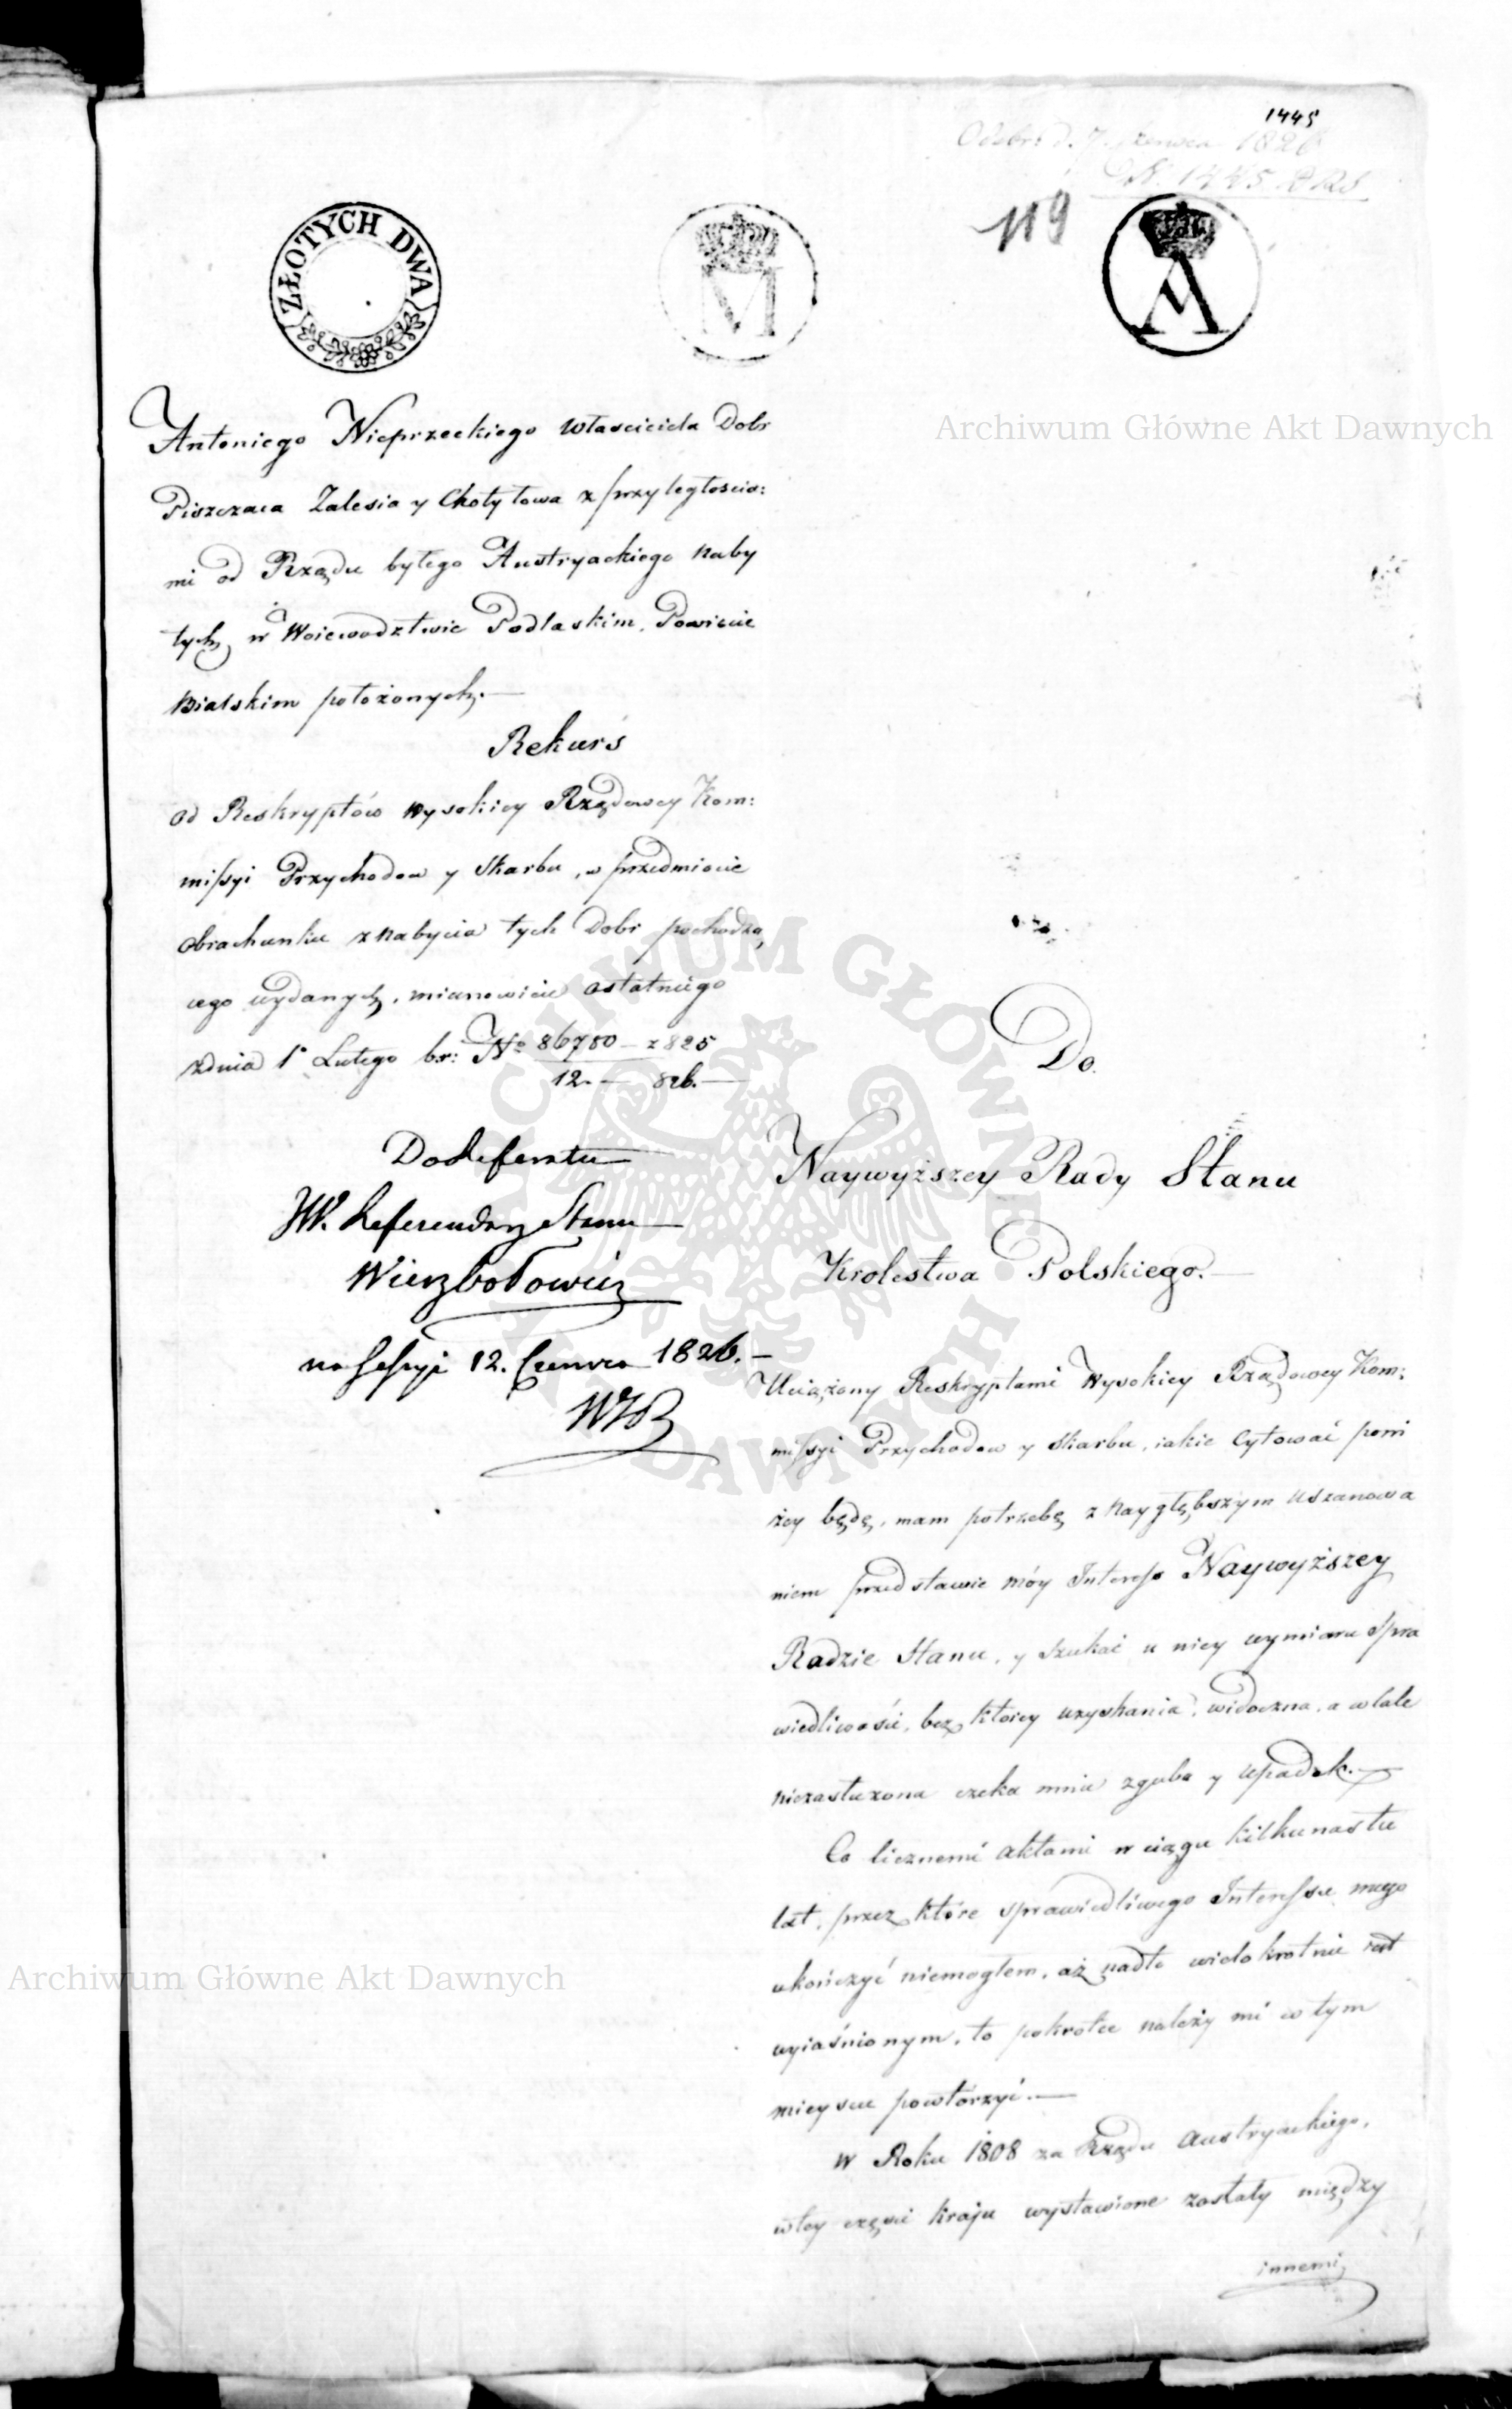 1445
Odebr: d. 7. Czerwca 1826
N. 1445 RS
119
ZŁOTYCH DWA
Antoniego Nieprzeckiego Własciciela Dobr
Piszczaca Zalesia y Chotyłowa z przyległoscia:
mi od Rządu byłego Austryackiego naby
tych, w Woiewodztwie Podlaskim, Powiecie
Bialskim położonych.—
Rekurs
od Reskryptów Wysokiey Rządowey Kom:
missyi Przychodow y Skarbu, w przedmiocie
Obrachunku z nabycia tych Dobr pochodzą
cego wydanych, mianowicie ostatniego
z dnia 1° Lutego br: No 86780 — z 825
12. — 826. —
Do Referatu
JW. Referendarz Stanu
Wierzbołowicz
na Sessyi 12. Czerwca 1826. —
Do
Naywyższey Rady Stanu
Krolestwa Polskiego. —
Uciążony Reskryptami Wysokiey Rządowey Kom:
missyi Przychodow y Skarbu, iakie Cytować poni
żey będę, mam potrzebę z naygłębszym uszanowa
niem przedstawic móy Interess Naywyższey
Radzie Stanu, y szukać u niey wymiaru spra
wiedliwości, bez ktorey uzyskania, widoczna, a wcale
niezasłużona czeka mnie zguba y upadek. —
Co licznemi aktami w ciągu kilkunastu
lat, przez które sprawiedliwego Interessu mego
ukończyć niemogłem, aż nadto wielokrotnie iest
wyiaśnionym, to pokrotce należy mi w tym
mieyscu powtórzyć. —
W Roku 1808 za Rządu Austryackiego,
w tey części kraju wystawione zostały między
innemi
Archiwum Główne Akt Dawnych
Archiwum Główne Akt Dawnych
ARCHIWUM GŁÓWNE AKT DAWNYCH